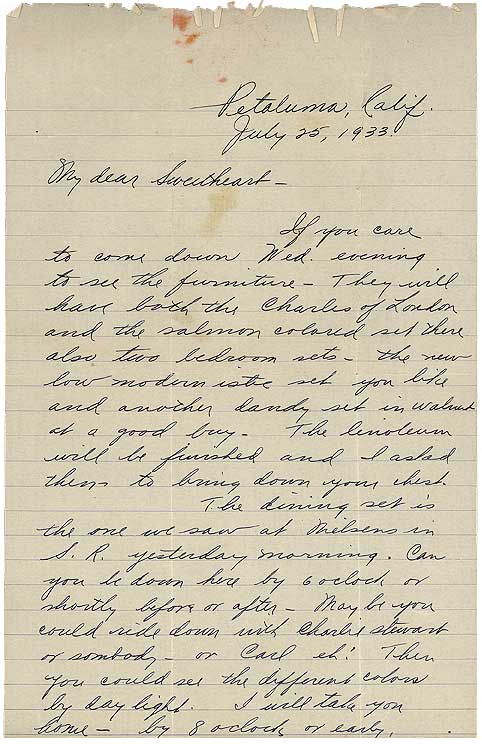 Petaluma, Calif.
July 25, 1933.
My dear Sweetheart -
If you care
to come down Wed. evening
to see the furniture - They will
have both the Charles of London
and the salmon colored set there
also two bedroom sets - the new
low modernistic set you like
and another dandy set in walnut
at a good buy. The linoleum
will be finished and I asked
them to bring down your chest.
The dining set is
the one we saw at Nielsens in
S. R. yesterday morning. Can
you be down here by 6 oclock or
shortly before or after - May be you
could ride down with Charlie Stewart
or sombody - or Carl eh! Then
you could see the different colors
by day light. I will take you
home - by 8 oclock or early.